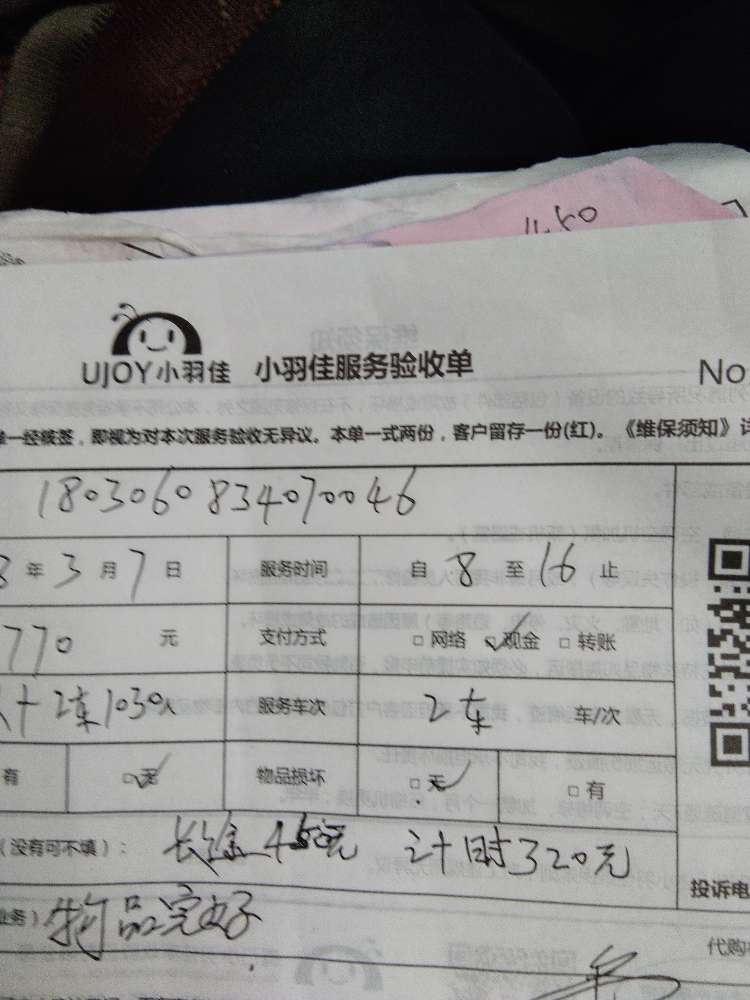 11.50
UJOY小羽佳 小羽佳服务验收单 No
单一经核签，即视为对本次服务验收无异议。本单一式两份，客户留存一份(红)。《维保须知》详
180306083407046
8年3月7日 服务时间 自8至16止
770元 支付方式 □网络 ☑现金 □转账
人+2车1030人 服务车次 2车 车/次
有 ☑无 物品损坏 ☑无 □有
(没有可不填)： 长途450元 计时320元
投诉电
业务) 物品完好
代购